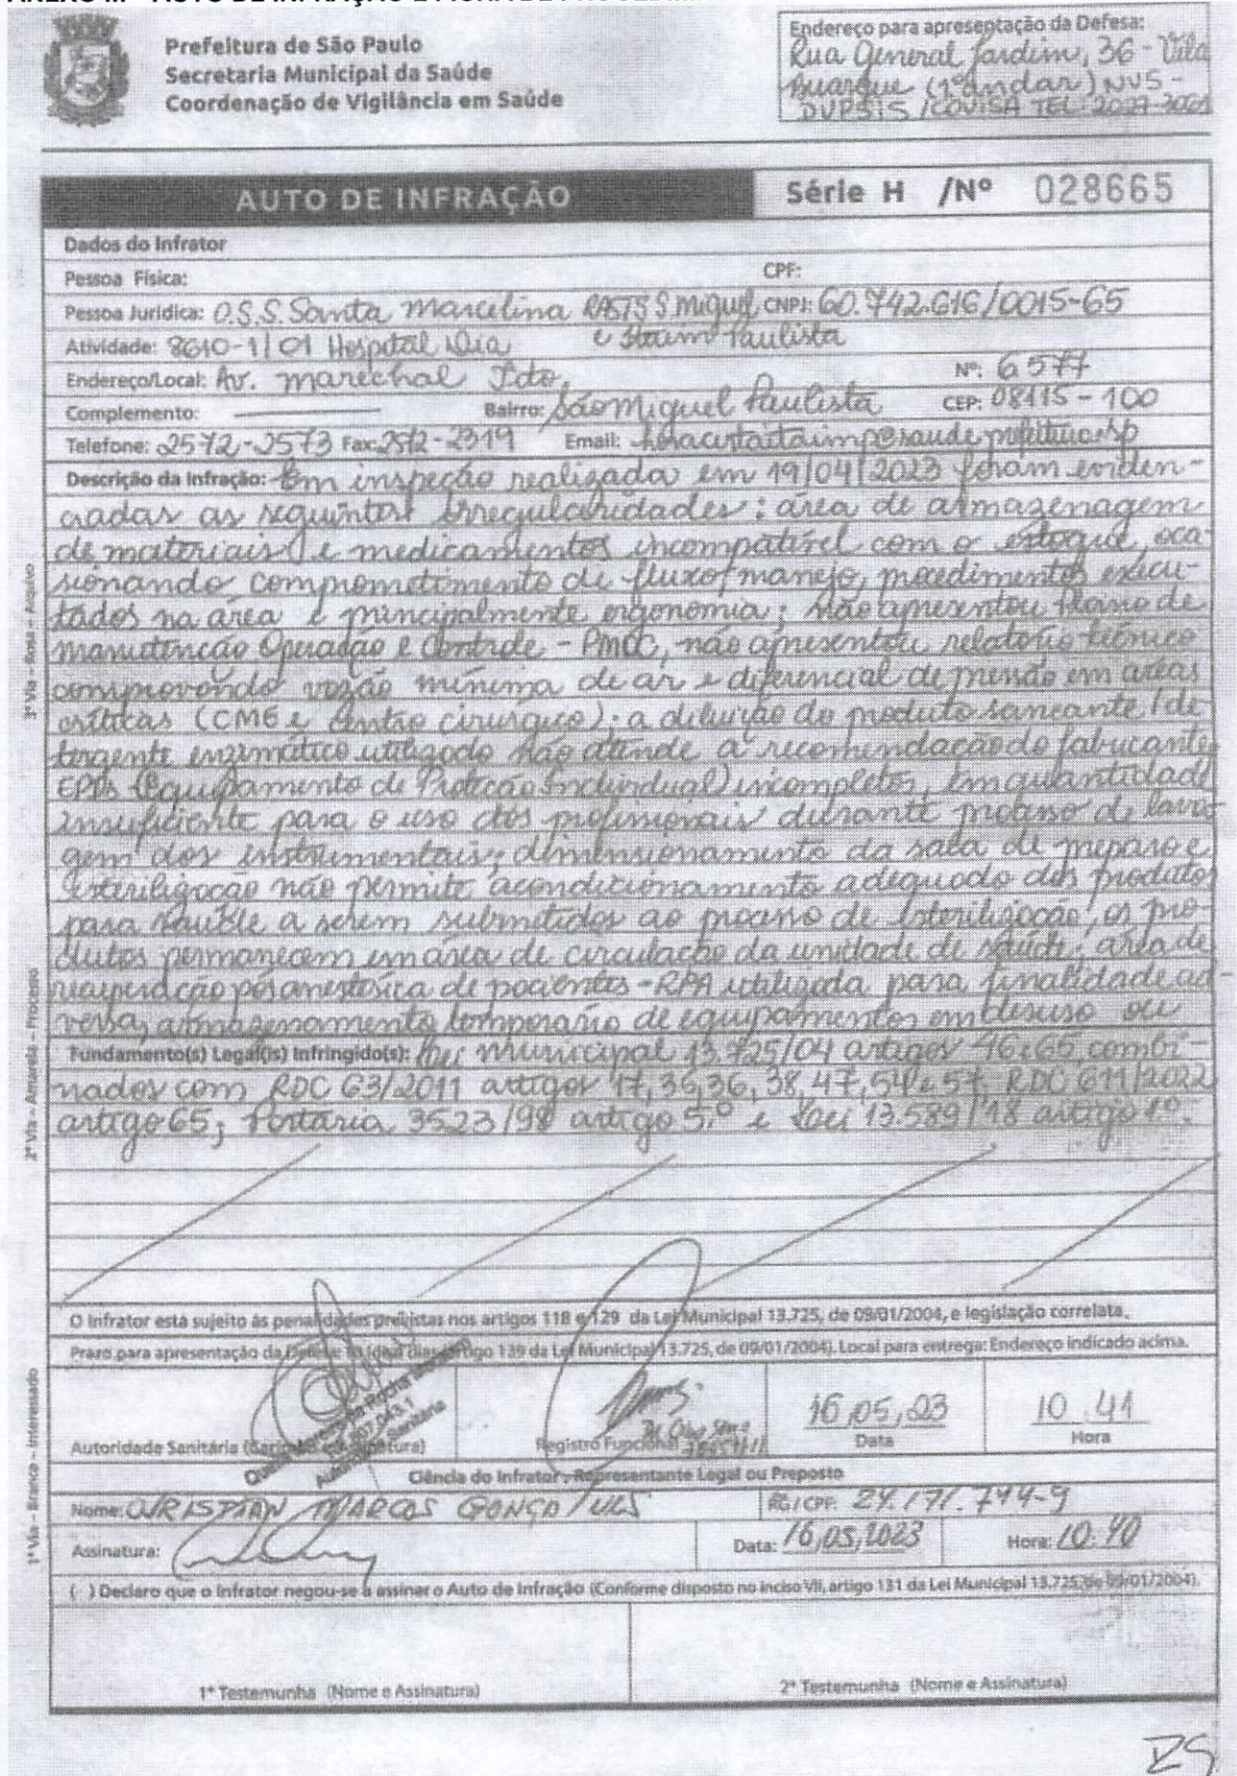 Prefeitura de São Paulo
Secretaria Municipal da Saúde
Coordenação de Vigilância em Saúde
Endereço para apresentação da Defesa:
Rua General Jardim, 36 - Vila
Buarque (1º andar) NVS -
DVPSIS / COVISA TEL: 2027-
AUTO DE INFRAÇÃO
Série H /Nº 028665
Dados do Infrator
Pessoa Física: CPF:
Pessoa Jurídica: O.S.S. Santa Marcelina RASTS S Miguel CNPJ: 60.742.616/0015-65
e Itaim Paulista
Atividade: 8610-1/01 Hospital Dia
Endereço/Local: Av. Marechal Tito, Nº: 6577
Complemento: Bairro: São Miguel Paulista CEP: 08115-100
Telefone: 2572-2573 Fax: 2572-2319 Email:
Descrição da Infração: Em inspeção realizada em 19/04/2023 foram eviden-
ciadas as seguintes irregularidades: área de armazenagem
de materiais e medicamentos incompatível com o estoque, oca
sionando comprometimento de fluxo/manejo, procedimentos execu-
tados na área e principalmente ergonomia; não apresentou Plano de
manutenção Operação e Controle - PMOC, não apresentou relatório técnico
comprovando vazão mínima de ar e diferencial de pressão em áreas
críticas (CME e Centro cirúrgico); a diluição do produto saneante/de
tergente enzimático utilizado não atende a recomendação do fabricante,
EPIs (Equipamento de Proteção Individual) incompletos, em quantidade
insuficiente para o uso dos profissionais durante processo de lava
gem dos instrumentais; dimensionamento da sala de preparo e
esterilização não permite acondicionamento adequado dos produtos
para saúde a serem submetidos ao processo de esterilização, os pro-
dutos permanecem em área de circulação da unidade de saúde; área de
recuperação pós anestésica de pacientes - RPA utilizada para finalidade ad-
versa, armazenamento temporário de equipamentos em desuso ou
Fundamento(s) Legal(is) Infringido(s): Lei Municipal 13.725/04 artigos 46 e 65 combi-
nados com RDC 63/2011 artigos 17, 35, 36, 38, 47, 54 e 57, RDC 611/2022
artigo 65; Portaria 3523/98 artigo 5.º e Lei 13.589/18 artigo 1º.
O Infrator está sujeito às penalidades previstas nos artigos 118 e 129 da Lei Municipal 13.725, de 09/01/2004, e legislação correlata.
Prazo para apresentação da Defesa: 10 (dez) dias (artigo 139 da Lei Municipal 13.725, de 09/01/2004). Local para entrega: Endereço indicado acima.
Autoridade Sanitária
Autoridade Sanitária
Registro Funcional
16/05/23
Data
10:41
Hora
Ciência do Infrator, Representante Legal ou Preposto
Nome: CHRISTIAN MARCOS GONÇALVES RG/CPF: 24.171.744-9
Assinatura: Data: 16/05/2023 Hora: 10:40
( ) Declaro que o Infrator negou-se à assinar o Auto de Infração (Conforme disposto no inciso VII, artigo 131 da Lei Municipal 13.725, de 09/01/2004).
1ª Testemunha (Nome e Assinatura)
2ª Testemunha (Nome e Assinatura)
3ª Via - Rosa - Arquivo
2ª Via - Amarela - Processo
1ª Via - Branca - Interessado